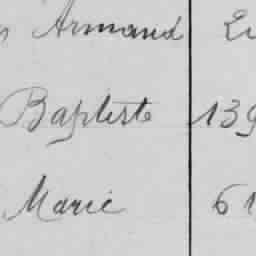 Armand
Baptiste 139
Marie 61